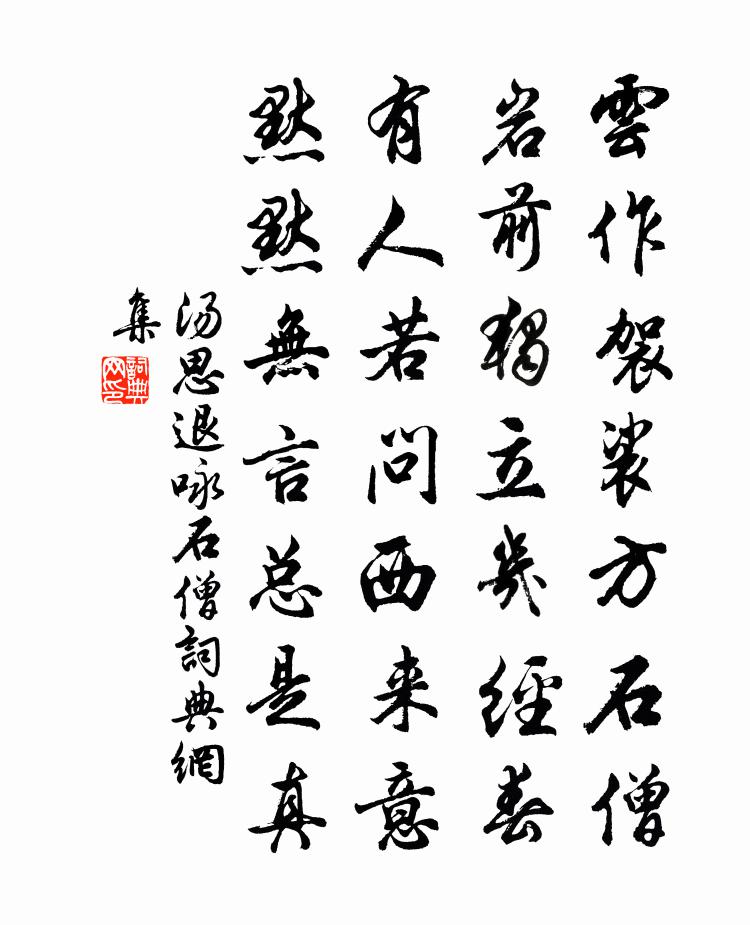 雲作袈裟方石僧
岩前獨立幾經春
有人若問西来意
默默無言总是真
湯思退咏石僧詞典網
集
詞典网印